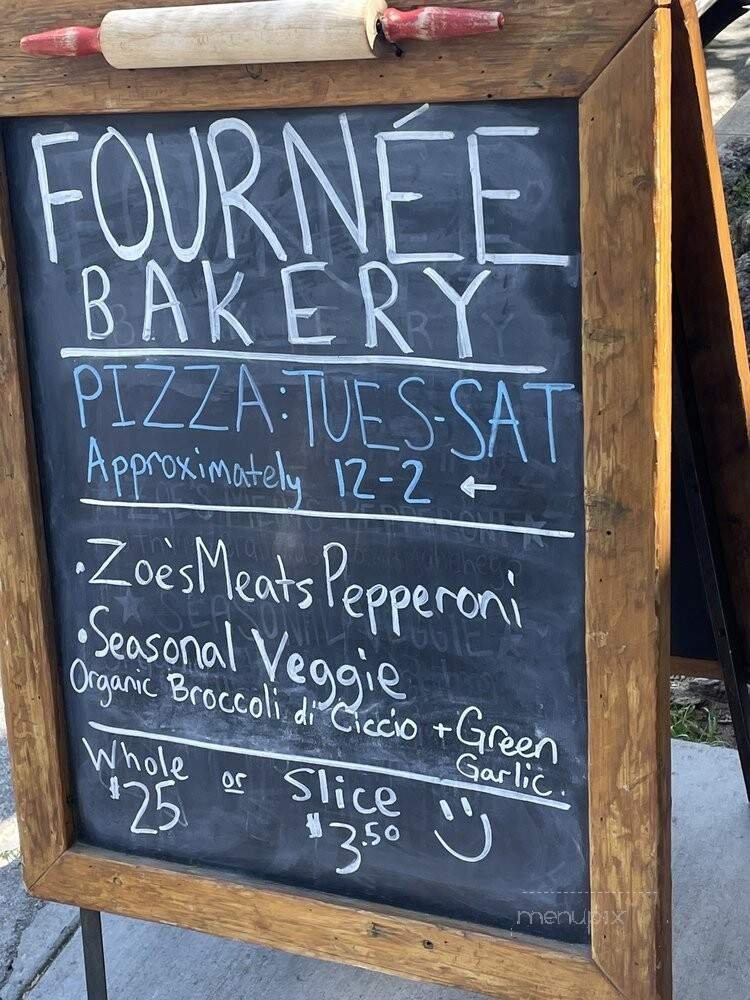 FOURNÉE
BAKERY
PIZZA: TUES-SAT
Approximately 12-2 ←
• Zoe's Meats Pepperoni
• Seasonal Veggie
Organic Broccoli di Ciccio + Green
Garlic.
Whole or Slice
$25 $3.50
menupix